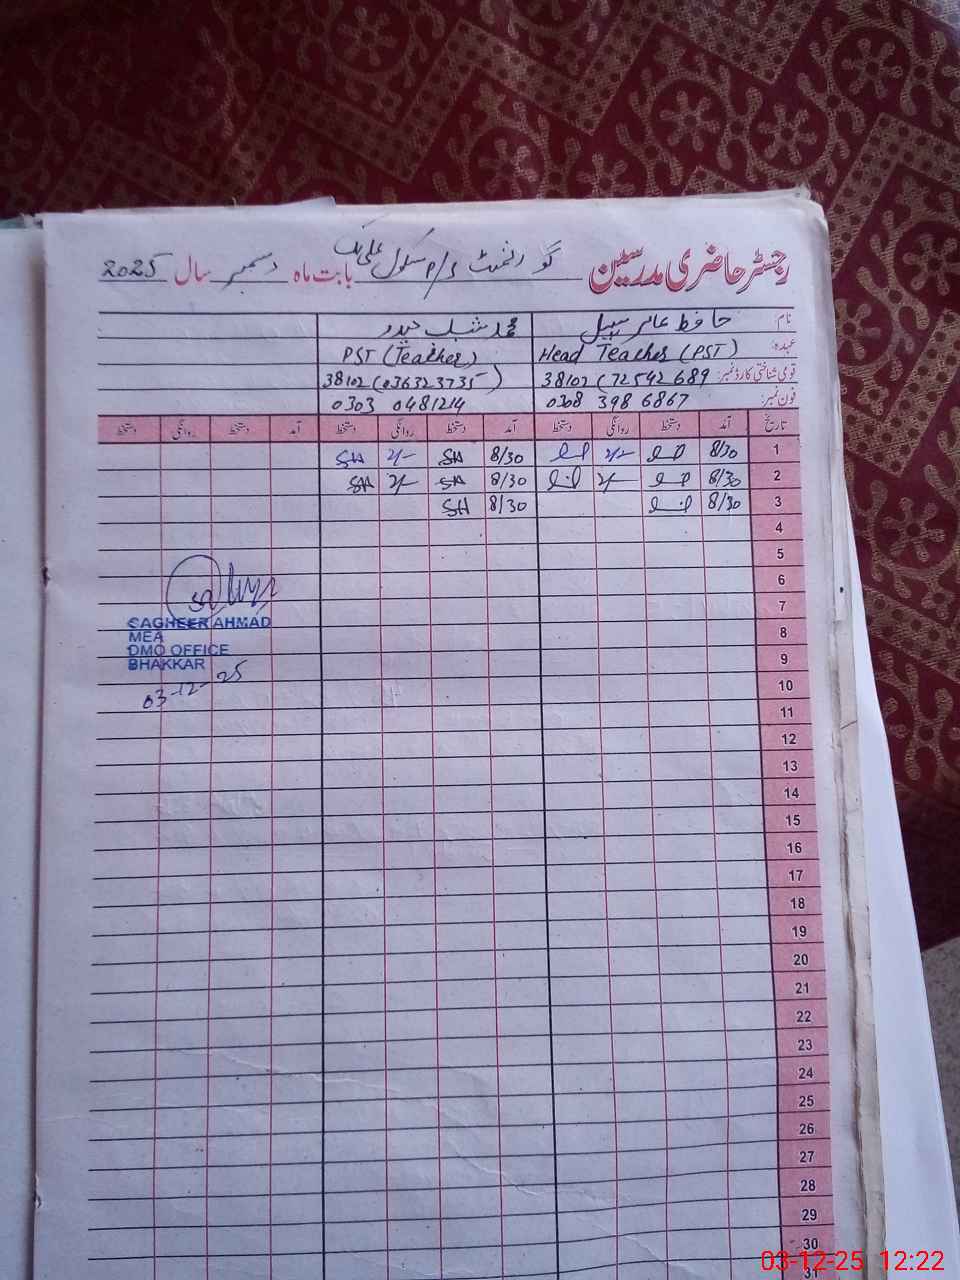 رجسٹر حاضری مدرسین گورنمنٹ p/s سکول علی بابت ماہ دسمبر سال 2025
نام: حافظ عامر سہیل محمد شبیب حیدر
عہدہ: Head Teacher (PST) PST (Teacher)
قومی شناختی کارڈ نمبر: 38102 (72542689 38102 (036323735)
فون نمبر: 0308 398 6867 0303 0481214
تاریخ آمد دستخط روانگی دستخط آمد دستخط روانگی دستخط آمد دستخط روانگی دستخط
1 8/30 2/- 8/30 SH 2/- SH
2 8/30 2/- 8/30 SH 2/- SH
3 8/30 8/30 SH
4
5
6
7
SAGHEER AHMAD
MEA
8
DMO OFFICE
9
BHAKKAR
03-12-25
10
11
12
13
14
15
16
17
18
19
20
21
22
23
24
25
26
27
28
29
30
31
03-12-25 12:22